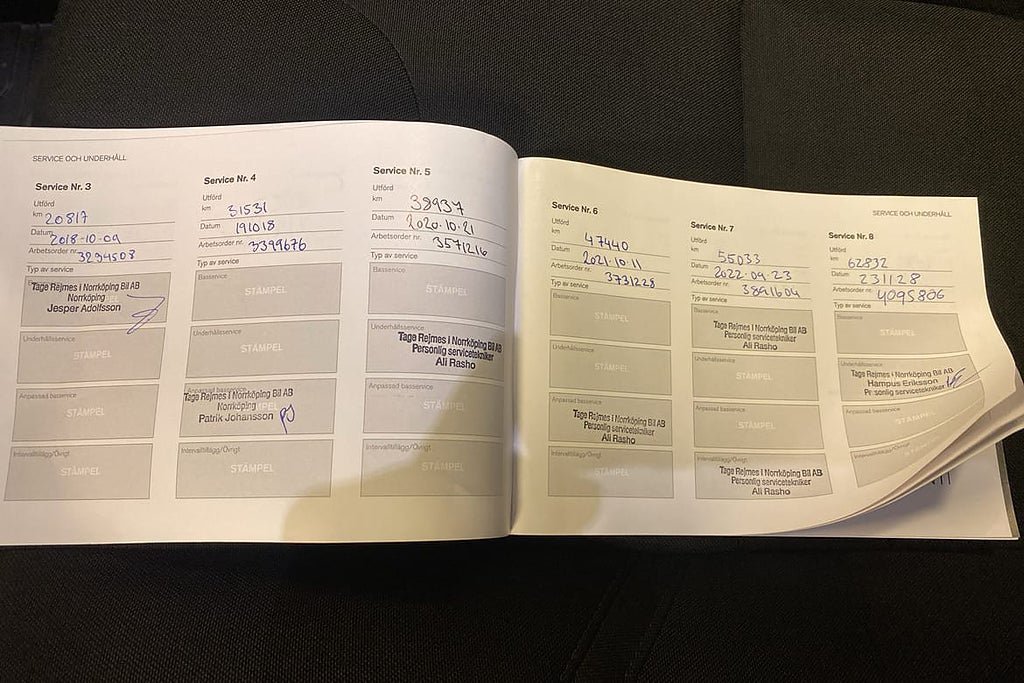 SERVICE OCH UNDERHÅLL
Service Nr. 3
Utförd
km 20817
Datum 2018-10-09
Arbetsorder nr. 3294508
Typ av service
Tage Rejmes i Norrköping Bil AB
Norrköping
Jesper Adolfsson
Underhållsservice
STÄMPEL
Anpassad basservice
STÄMPEL
Intervalltillägg/Övrigt
STÄMPEL
Service Nr. 4
Utförd
km 31531
Datum 191018
Arbetsorder nr. 3399676
Typ av service
Basservice
STÄMPEL
Underhållsservice
STÄMPEL
Anpassad basservice
Tage Rejmes i Norrköping Bil AB
Norrköping
Patrik Johansson PJ
Intervalltillägg/Övrigt
STÄMPEL
Service Nr. 5
Utförd
km 38937
Datum 2020.10.21
Arbetsorder nr. 3571216
Typ av service
Basservice
STÄMPEL
Underhållsservice
Tage Rejmes i Norrköping Bil AB
Personlig servicetekniker
Ali Rasho
Anpassad basservice
STÄMPEL
Intervalltillägg/Övrigt
STÄMPEL
SERVICE OCH UNDERHÅLL
Service Nr. 6
Utförd
km 47440
Datum 2021.10.11
Arbetsorder nr. 3731228
Typ av service
Basservice
STÄMPEL
Underhållsservice
STÄMPEL
Anpassad basservice
Tage Rejmes i Norrköping Bil AB
Personlig servicetekniker
Ali Rasho
Intervalltillägg/Övrigt
STÄMPEL
Service Nr. 7
Utförd
km 55033
Datum 2022.09.23
Arbetsorder nr. 3891604
Typ av service
Basservice
Tage Rejmes i Norrköping Bil AB
Personlig servicetekniker
Ali Rasho
Underhållsservice
STÄMPEL
Anpassad basservice
STÄMPEL
Intervalltillägg/Övrigt
Tage Rejmes i Norrköping Bil AB
Personlig servicetekniker
Ali Rasho
Service Nr. 8
Utförd
km 62832
Datum 231128
Arbetsorder nr. 4095806
Typ av service
Basservice
STÄMPEL
Underhållsservice
Tage Rejmes i Norrköping Bil AB
Hampus Eriksson
Personlig servicetekniker
Anpassad basservice
STÄMPEL
Intervalltillägg/Övrigt
STÄMPEL